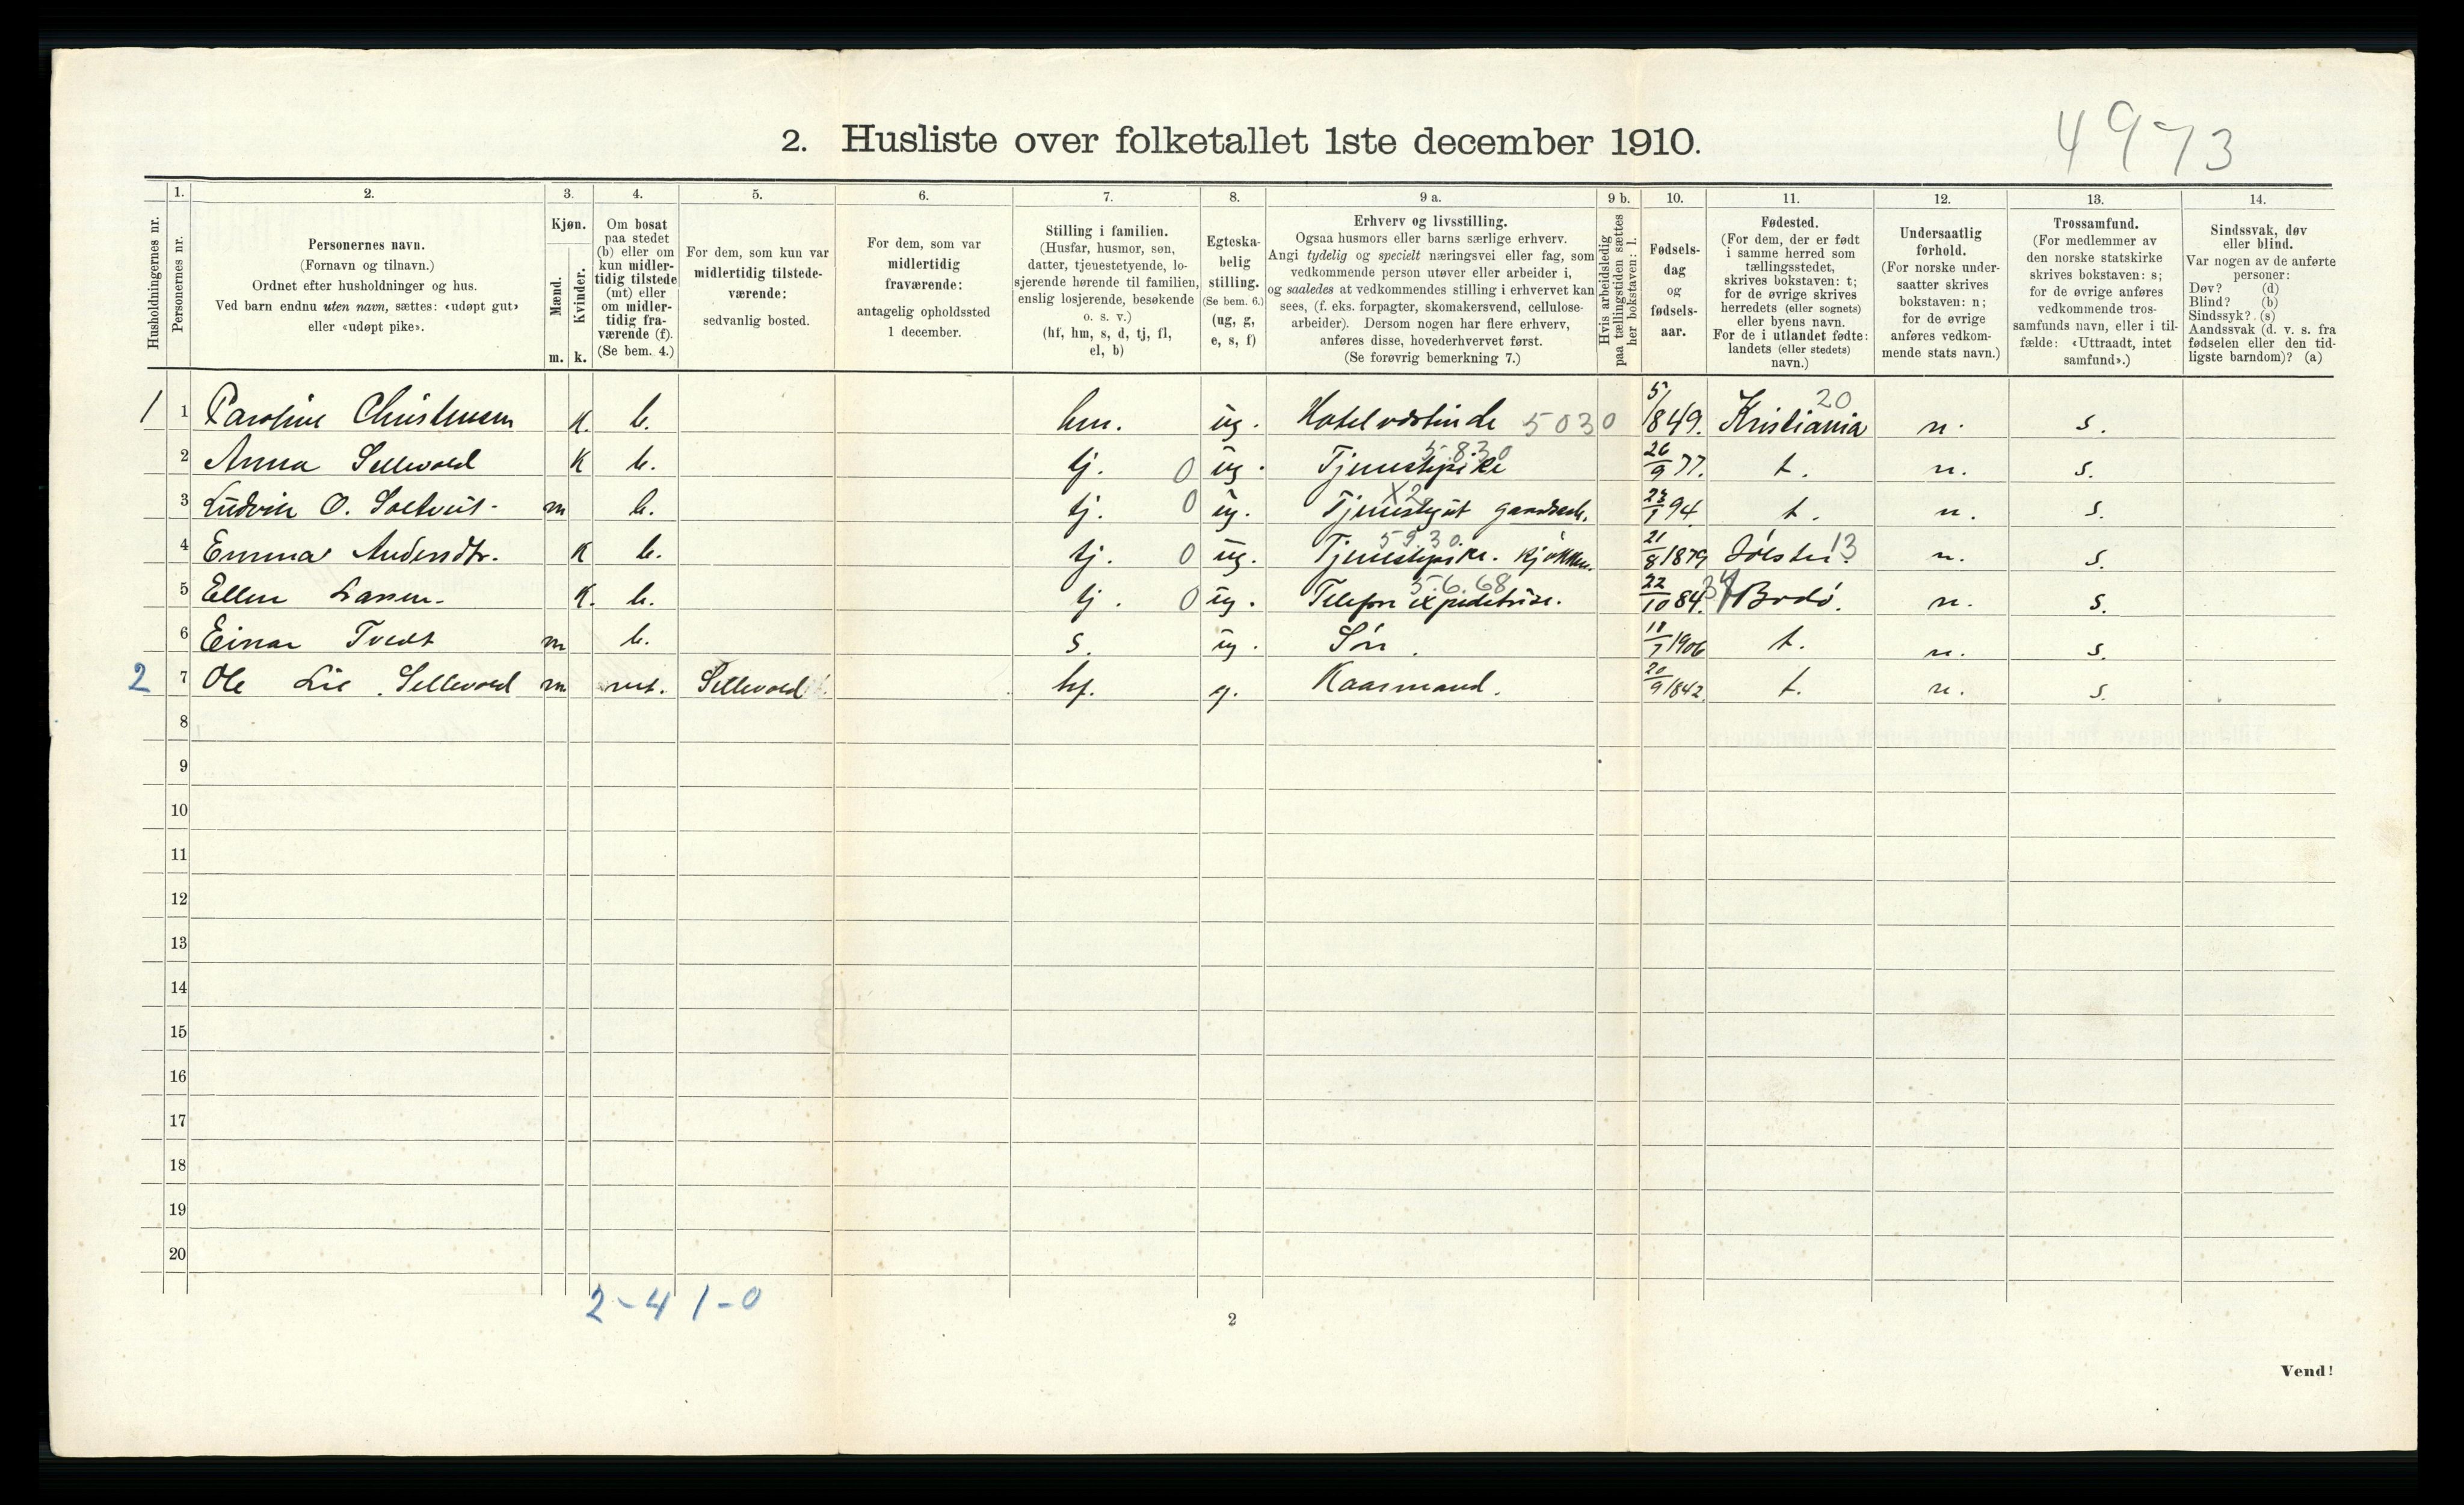 4973
2. Husliste over folketallet 1ste december 1910.
1. 2. 3. 4. 5. 6. 7. 8. 9 a. 9 b. 10. 11. 12. 13. 14.
Husholdningernes nr.
Personernes nr.
Personernes navn.
(Fornavn og tilnavn.)
Ordnet efter husholdninger og hus.
Ved barn endnu uten navn, sættes: «udøpt gut»
eller «udøpt pike».
Kjøn.
Mænd.
Kvinder.
m. k.
Om bosat
paa stedet
(b) eller om
kun midler-
tidig tilstede
(mt) eller
om midler-
tidig fra-
værende (f).
(Se bem. 4.)
For dem, som kun var
midlertidig tilstede-
værende:
sedvanlig bosted.
For dem, som var
midlertidig
fraværende:
antagelig opholdssted
1 december.
Stilling i familien.
(Husfar, husmor, søn,
datter, tjenestetyende, lo-
sjerende hørende til familien,
enslig losjerende, besøkende
o. s. v.)
(hf, hm, s, d, tj, fl,
el, b)
Egteska-
belig
stilling.
(Se bem. 6.)
(ug, g,
e, s, f)
Erhverv og livsstilling.
Ogsaa husmors eller barns særlige erhverv.
Angi tydelig og specielt næringsvei eller fag, som
vedkommende person utøver eller arbeider i,
og saaledes at vedkommendes stilling i erhvervet kan
sees, (f. eks. forpagter, skomakersvend, cellulose-
arbeider). Dersom nogen har flere erhverv,
anføres disse, hovederhvervet først.
(Se forøvrig bemerkning 7.)
Hvis arbeidsledig
paa tællingstiden sættes
her bokstaven: l.
Fødsels-
dag
og
fødsels-
aar.
Fødested.
(For dem, der er født
i samme herred som
tællingsstedet,
skrives bokstaven: t;
for de øvrige skrives
herredets (eller sognets)
eller byens navn.
For de i utlandet fødte:
landets (eller stedets)
navn.)
Undersaatlig
forhold.
(For norske under-
saatter skrives
bokstaven: n;
for de øvrige
anføres vedkom-
mende stats navn.)
Trossamfund.
(For medlemmer av
den norske statskirke
skrives bokstaven: s;
for de øvrige anføres
vedkommende tros-
samfunds navn, eller i til-
fælde: «Uttraadt, intet
samfund».)
Sindssvak, døv
eller blind.
Var nogen av de anførte
personer:
Døv? (d)
Blind? (b)
Sindssyk? (s)
Aandssvak (d. v. s. fra
fødselen eller den tid-
ligste barndom)? (a)
1 1 Paroline Christensen K. b. hm. ug. Hotelværtinde 5030 1849. Kristiania 20 n. s.
2 Anna Sellevold K b. tj. 0 ug. Tjenestepike 5.8.30 26/9 77. t. n. s.
3 Ludvik O. m b. tj. 0 ug. Tjenestegut X2 23/1 94. t. n. s.
4 Emma Andersdtr. K b. tj. 0 ug. Tjenestepike. Kjøkken. 5930. 21/8 1879 Jølster 13 n. s.
5 Ellen Larsen K. b. tj. 0 ug. Telefon expeditrise. 5.6.68 22/10 84. Bodø. n. s.
6 Einar Tvedt m b. s. ug. Søn. 1906 t. n. s.
2 7 Ole Lie Sellevold m mt. Sellevold hf. g. Kaarmand. 20/9 1842. t. n. s.
8
9
10
11
12
13
14
15
16
17
18
19
20
2-4 1-0
2
Vend!